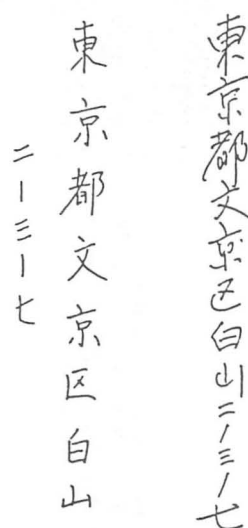 東京都文京区白山二ー三ー七
東京都文京区白山
二ー三ー七